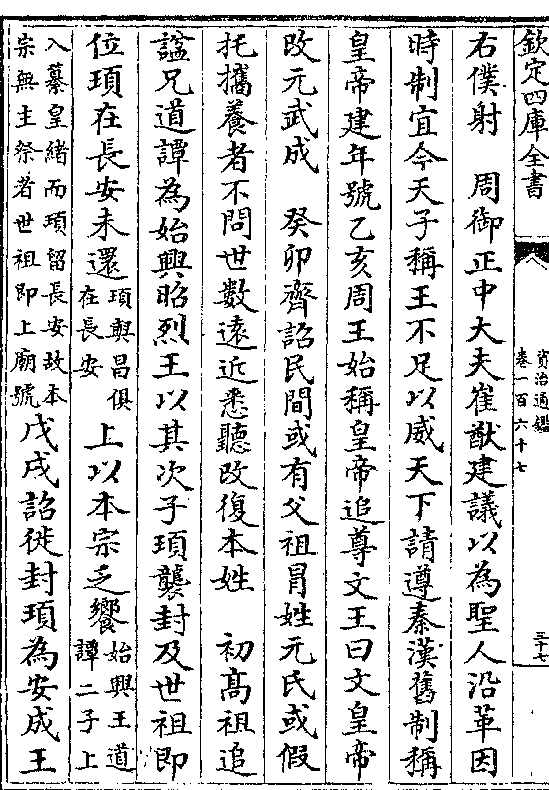 欽定四庫全書
資治通鑑
卷一百六十七
三十七
右僕射　周御正中大夫崔猷建議以為聖人沿革因
時制宜今天子稱王不足以威天下請遵秦漢舊制稱
皇帝建年號乙亥周王始稱皇帝追尊文王曰文皇帝
改元武成　癸卯齊詔民間或有父祖冒姓元氏或假
托攜養者不問世數遠近悉聽改復本姓　初高祖追
諡兄道譚為始興昭烈王以其次子頊襲封及世祖即
位頊在長安未還頊與昌俱在長安上以本宗乏饗始興王道譚二子上
入纂皇緒而頊留長安故本宗無主祭者世祖即上廟號戊戌詔徙封頊為安成王